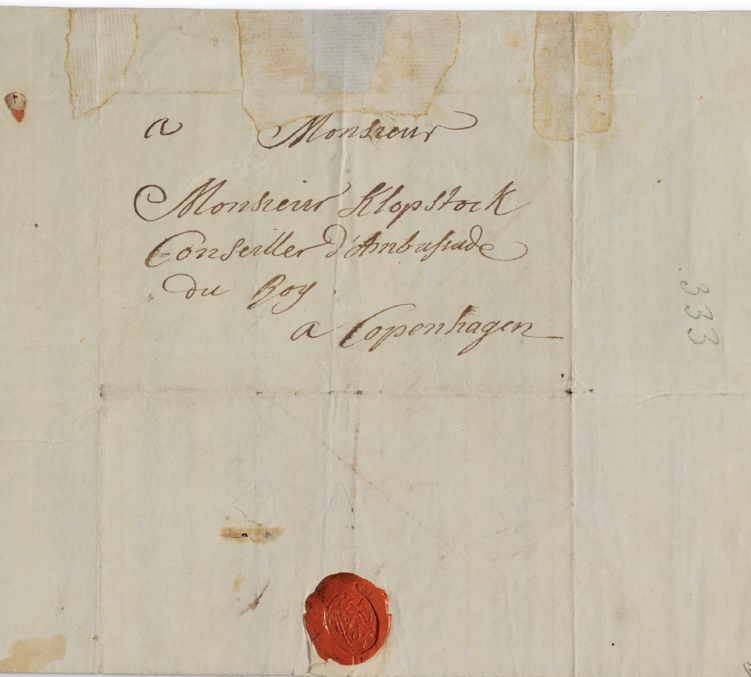 a Monsieur
Monsieur Klopstock
Conseiller d'Ambassade
du Roy.
a Copenhagen
333